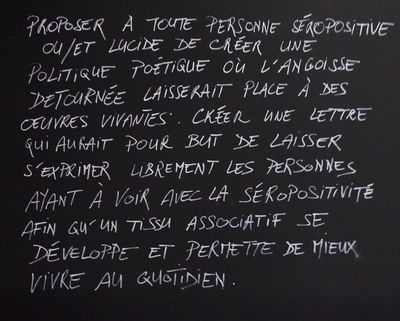 PROPOSER À TOUTE PERSONNE SÉROPOSITIVE
OU/ET LUCIDE DE CRÉER UNE
POLITIQUE POÉTIQUE OÙ L'ANGOISSE
DETOURNÉE LAISSERAIT PLACE À DES
ŒUVRES VIVANTES. CRÉER UNE LETTRE
QUI AURAIT POUR BUT DE LAISSER
S'EXPRIMER LIBREMENT LES PERSONNES
AYANT À VOIR AVEC LA SÉROPOSITIVITÉ
AFIN QU'UN TISSU ASSOCIATIF SE
DÉVELOPPE ET PERMETTE DE MIEUX
VIVRE AU QUOTIDIEN.